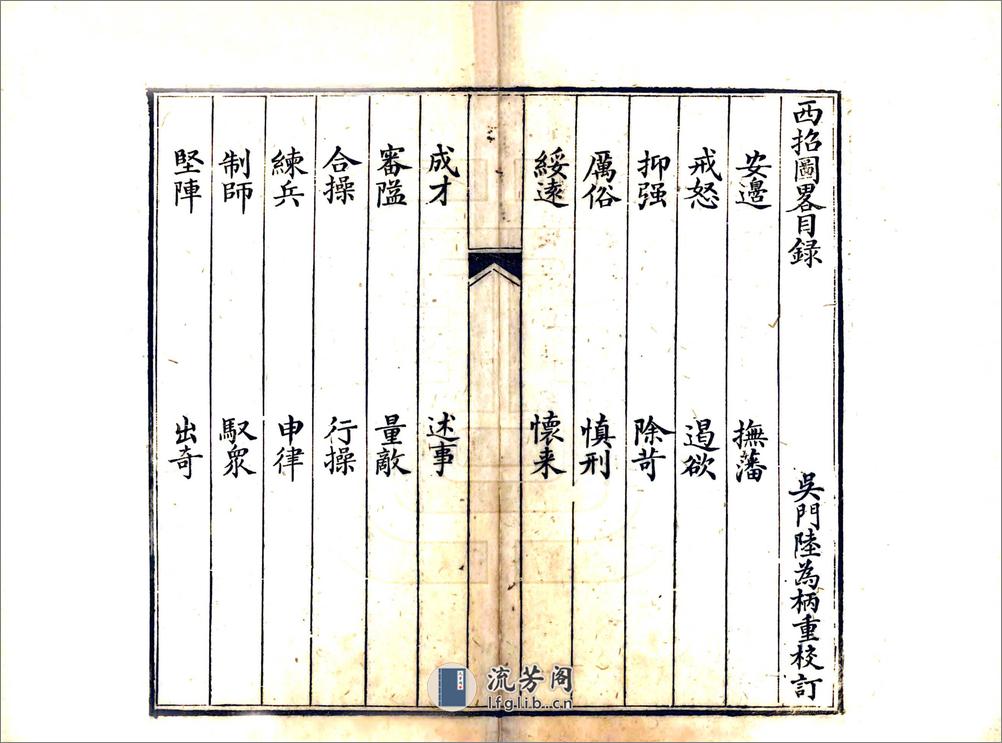 西招圖畧目録 吳門陸為柄重校訂
安邊 撫藩
戒怒 遏欲
抑强 除苛
厲俗 慎刑
綏遠 懷来
成才 述事
審隘 量敵
合操 行操
練兵 申律
制師 馭衆
堅陣 出奇
流芳阁
lfglib.cn